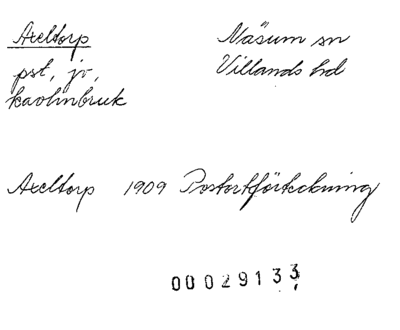 Axeltorp
pst, jv,
kaolinbruk
Näsum sn
Villands hd
Axeltorp 1909 Postortförteckning
00029133